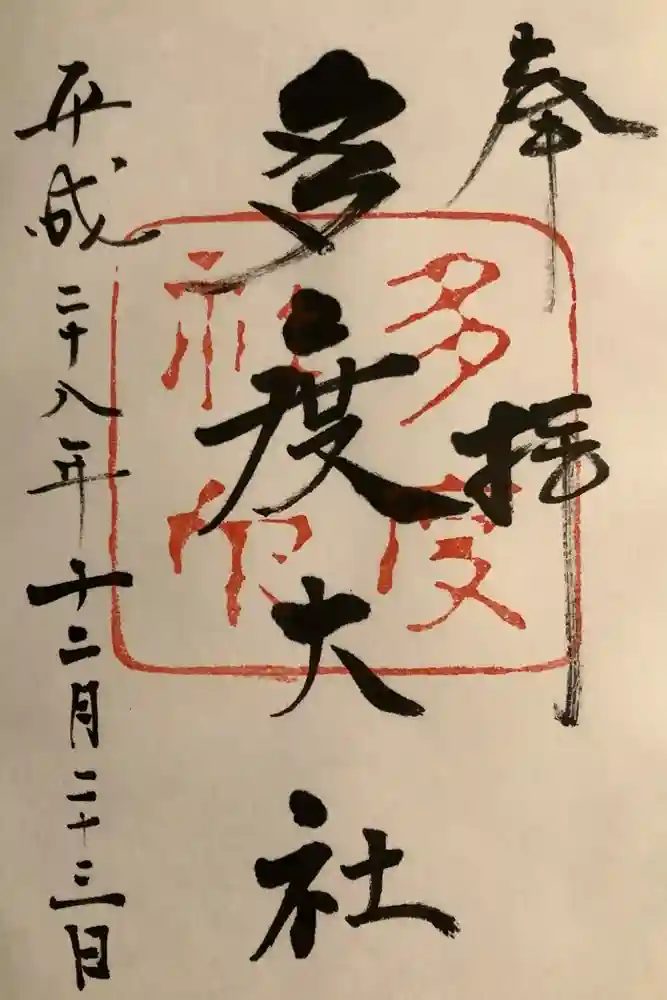 奉拝
多度大社
平成二十八年十二月二十三日
多度
社印